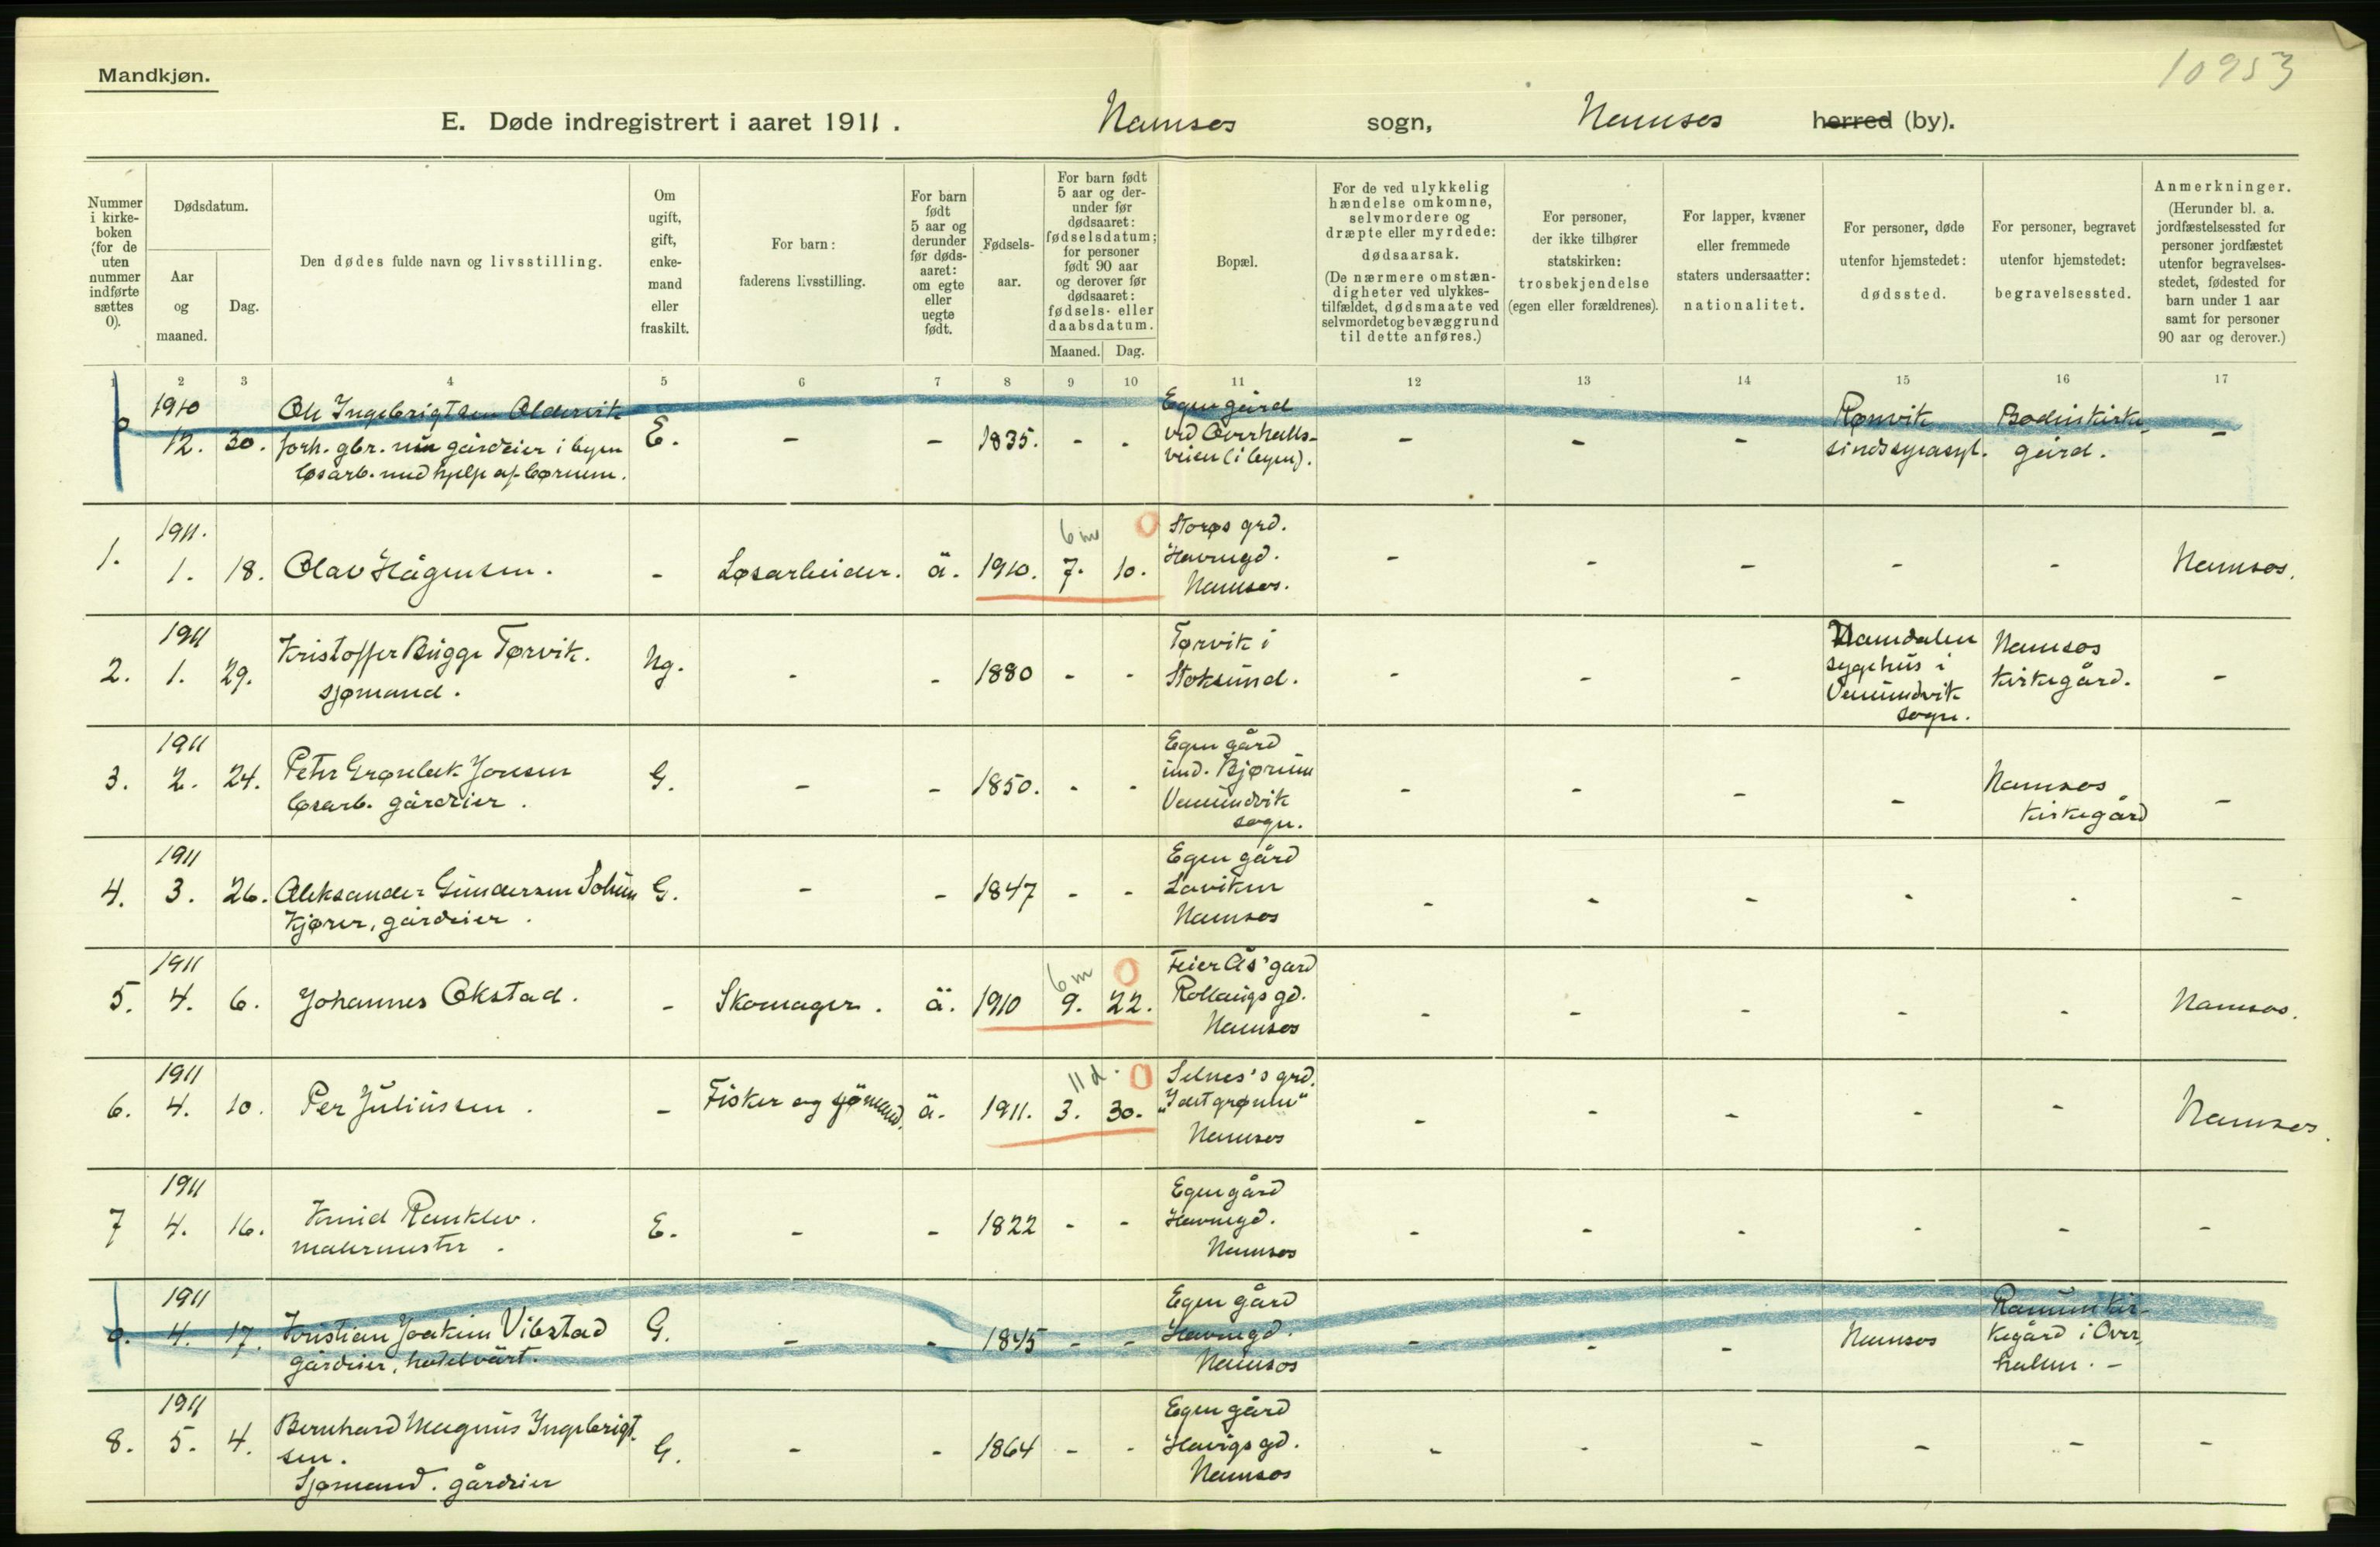 10953
Mandkjøn.
E. Døde indregistrert i aaret 1911. Namsos sogn, Namsos herred (by).
Nummer i kirkeboken (for de uten nummer indførte sættes 0).
Dødsdatum.
Aar og maaned.
Dag.
Den dødes fulde navn og livsstilling.
Om ugift, gift, enkemand eller fraskilt.
For barn: faderens livsstilling.
For barn født 5 aar og derunder før dødsaaret: om egte eller uegte født.
Fødselsaar.
For barn født 5 aar og derunder før dødsaaret: fødselsdatum; for personer født 90 aar og derover før dødsaaret: fødsels- eller daabsdatum.
Maaned. Dag.
Bopæl.
For de ved ulykkelig hændelse omkomne, selvmordere og dræpte eller myrdede: dødsaarsak.
(De nærmere omstændigheter ved ulykkestilfældet, dødsmaate ved selvmordet og bevæggrund til dette anføres.)
For personer, der ikke tilhører statskirken: trosbekjendelse (egen eller forældrenes).
For lapper, kvæner eller fremmede staters undersaatter: nationalitet.
For personer, døde utenfor hjemstedet: dødssted.
For personer, begravet utenfor hjemstedet: begravelsessted.
Anmerkninger. (Herunder bl. a. jordfæstelsessted for personer jordfæstet utenfor begravelsesstedet, fødested for barn under 1 aar samt for personer 90 aar og derover.)
1 2 3 4 5 6 7 8 9 10 11 12 13 14 15 16 17
0 1910 12. 30. Ole Ingebrigtsen Oldervik
forh. gbr. nu gårdeier i byen
løsarb. med hjelp af børnene.
E. - - 1835. - -
Egen gård
ved Overhalls-
veien (i byen).
- - -
Rønvik
sindssygeasyl.
Bodinkirke-
gård.
-
1. 1911. 1. 18. Olav Hågensen. - Løsarbeider. ä. 1910. 7. 10.
6 m 0
Storøs grd.
Havnegd.
Namsos.
- - - - - Namsos.
2. 1911 1. 29. Kristoffer Bugge Tørvik.
sjømand.
Ug. - - 1880 - -
Tørvik i
Stoksund.
- - -
Namdalen
sygehus i
Vemundvik
sogn.
Namsos
kirkegård.
-
3. 1911 2. 24. Peter Grønbek Jonsen
løsarb. gårdeier.
G. - - 1850. - -
Egen gård
und. Bjørum
Vemundvik
sogn.
- - - -
Namsos
kirkegård
-
4. 1911 3. 26. Aleksander Gundersen Solum
Kjører, gårdeier.
G. - - 1847 - -
Egen gård
Laviken
Namsos
- - - - - -
5. 1911 4. 6. Johannes Okstad. - Skomager. ä. 1910 9. 22.
6 m 0
Feier Ås' gard
Rollaugs gd.
Namsos
- - - - - Namsos.
6. 1911 4. 10. Per Juliussen. - Fisker og sjömand. ä. 1911. 3. 30.
11 d. 0
Selnes's grd.
"I det grønne"
Namsos
- - - - - Namsos.
7 1911 4. 16. Knud Ranklev.
malermester.
E. - - 1822 - -
Egen gård
Havnegd.
Namsos
- - - - - -
0. 1911 4. 17. Kristian Joakim Vibstad
gårdeier, hotelvärt.
G. - - 1845 - -
Egen gård
Havnegd.
Namsos
- - - Namsos
Ranum kir-
kegård i Over-
hallen. -
8. 1911 5. 4. Bernhard Magnus Ingebrigt-
sen.
Sjømand. gårdeier
G. - - 1864 - -
Egen gård
Havigs gd.
Namsos
- - - - - -